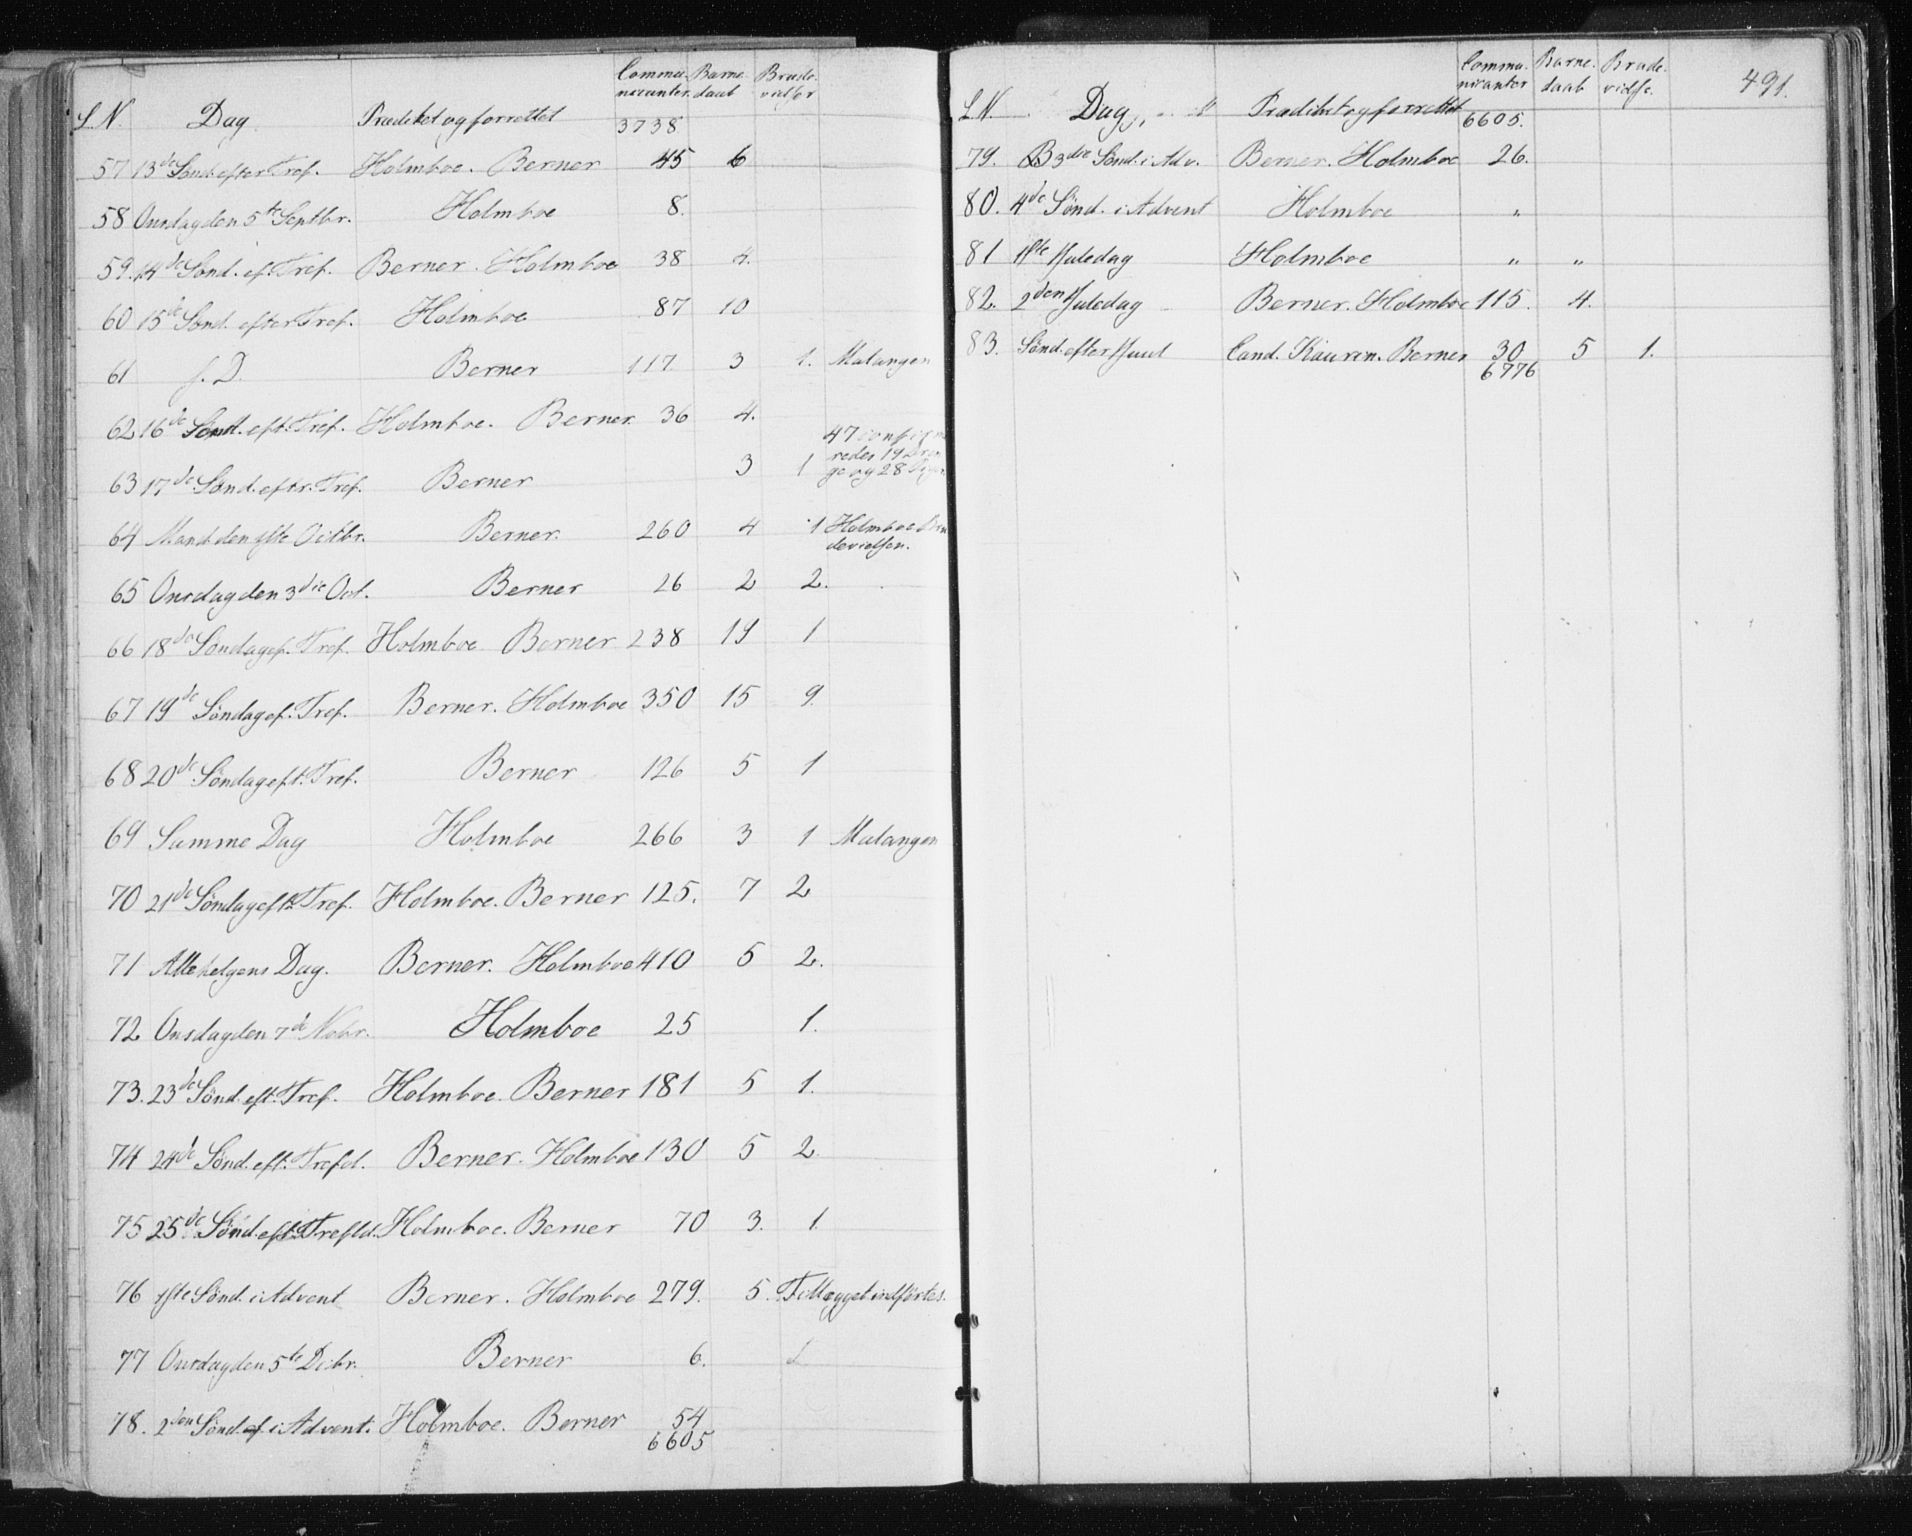 L.N. Dag Prædiket og forrettet Communicanter. Barne daab Brudevidser
3738
57 13de Sønd. efter Tref. Holmboe. Berner 45 6
58 Onsdag den 5te Septbr. Holmboe 8.
59. 14de Sønd. ef. Tref. Berner. Holmboe 38 4.
60 15de Sønd. efter Tref. Holmboe 87 10
61 s. D. Berner 117 3 1. Malangen
62 16de Sønd. eft. Tref. Holmboe. Berner 36 4.
63 17de Sønd. eftr. Tref. Berner 3 1 47 confirmeredes 19 Drenge og 28 Piger
64 Mand. den 1ste Octbr. Berner. 260 4 1 Holmboe Brudevielsen.
65 Onsdag den 3die Oct. Berner 26 2 2.
66 18de Søndag ef. Tref. Holmboe Berner 238 19 1
67 19de Søndag ef. Tref. Berner. Holmboe 350 15 9.
68 20de Søndag eft. Tref. Berner 126 5 1
69 Samme Dag Holmboe 266 3 1 Malangen
70 21de Søndag eft. Tref. Holmboe. Berner 125. 7 2
71 Allehelgens Dag. Berner. Holmboe 410 5 2.
72 Onsdag den 7de Nobr. Holmboe 25 1.
73. 23de Sønd. eft. Tref. Holmboe. Berner 181 5 1.
74 24de Sønd. eft. Trefd. Berner. Holmboe 130 5 2.
75 25de Sønd. eft. Trefld. Holmboe. Berner 70 3. 1.
76 1ste Sønd. i Advent Berner. Holmboe 279. 5. Tillægget indførtes.
77 Onsdag den 5te Decbr. Berner 6.
78. 2den Sønd. i Advent. Holmboe. Berner 54
6605
491.
L.N. Dag Prædiket og forrettet Communicanter Barne daab Brudevidse.
6605.
79. 3die Sønd. i Adv. Berner. Holmboe 26.
80. 4de Sønd. i Advent Holmboe "
81 1ste Juledag Holmboe " "
82. 2den Juledag Berner. Holmboe 115. 4.
83. Sønd. efter Juul Cand. Kauren. Berner 30 5 1.
6776